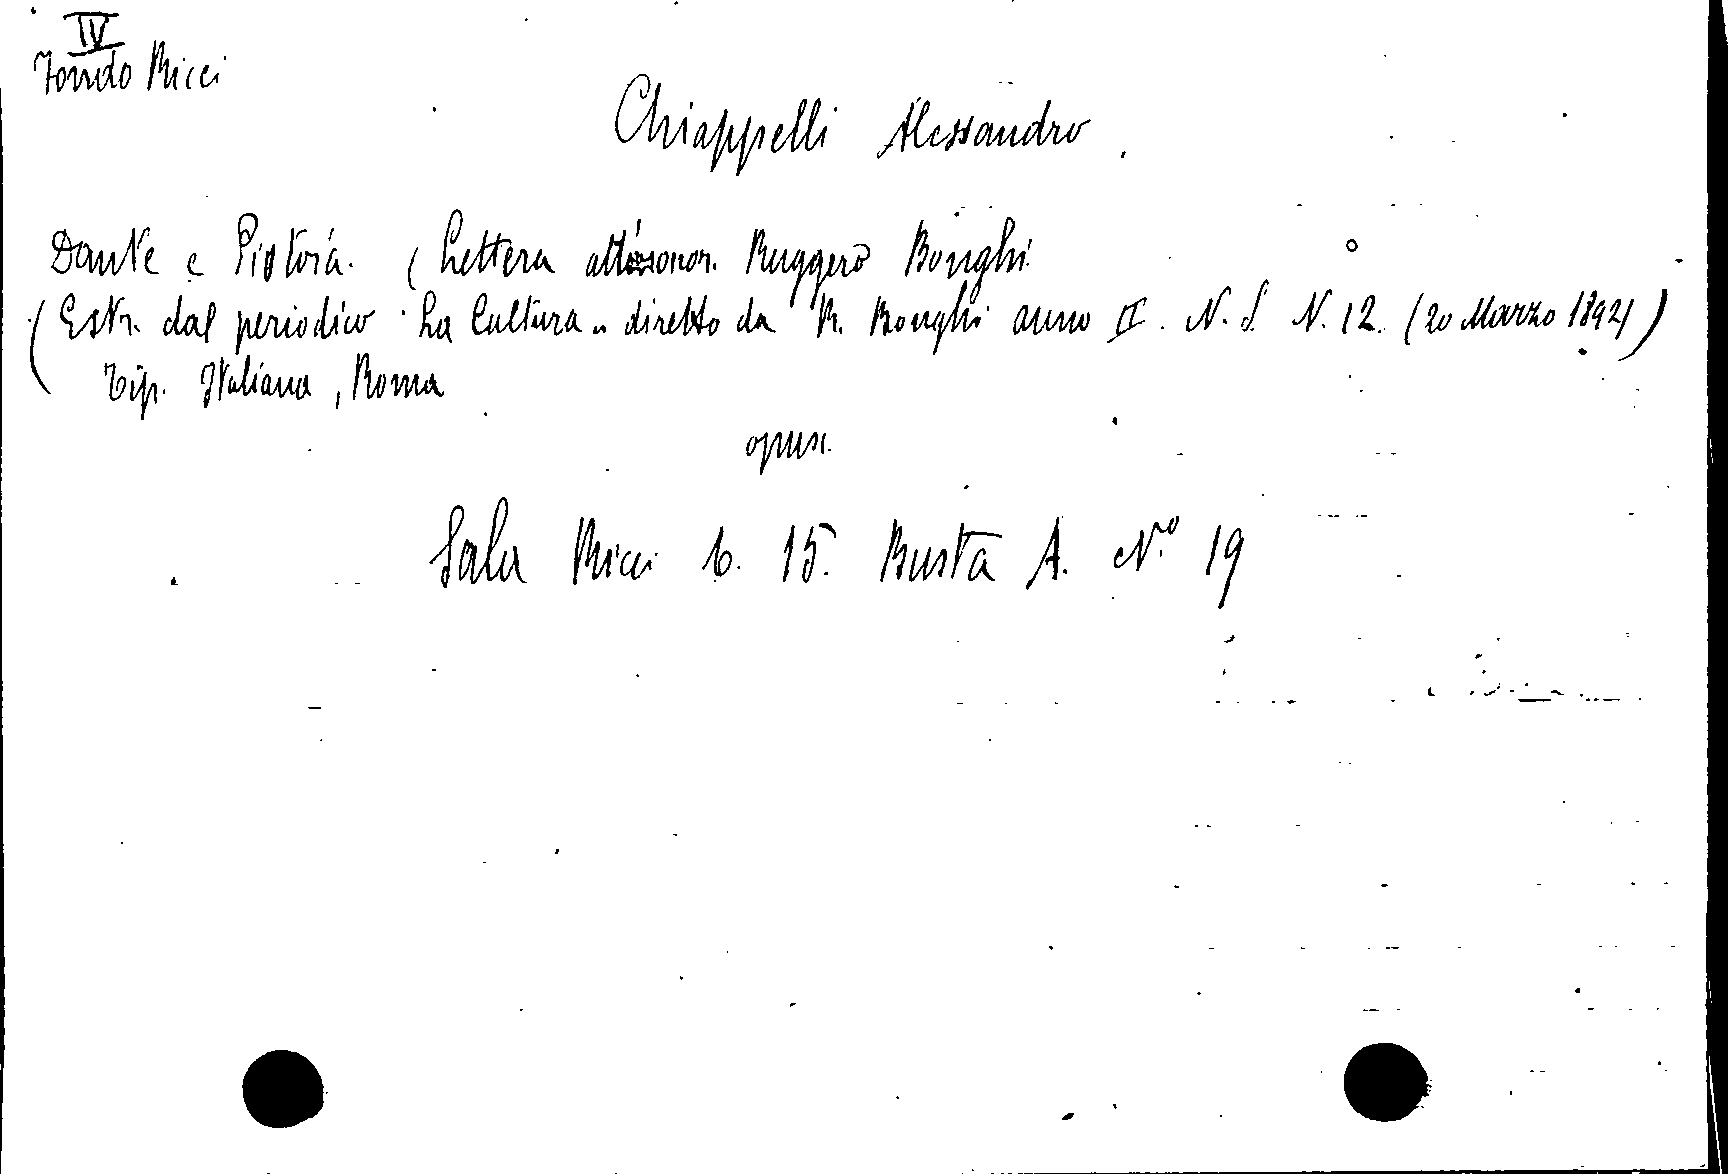 IV
Fondo Ricci
Chiappelli Alessandro.
Dante e Pistoia. (Lettera all'onor. Ruggero Bonghi
(Estr. dal periodico "La Cultura" diretto da R. Bonghi anno II. N. S. N. 12. (20 Marzo 1892)
Tip. Italiana, Roma
opusc.
Sala Ricci 6. 15. Busta A. N.º 19